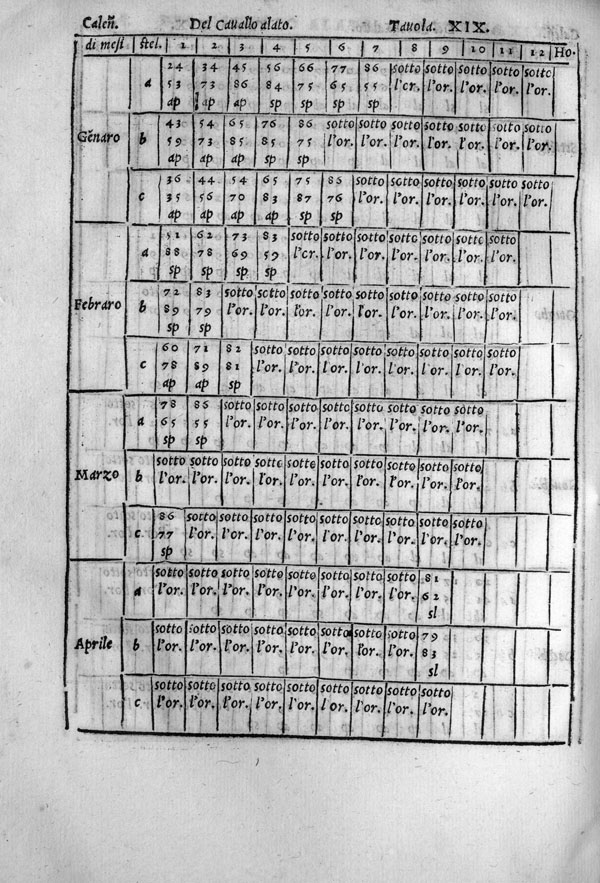 Caleñ. Del Cavallo alato. Tavola. XIX.
di mesi stel. 1 2 3 4 5 6 7 8 9 10 11 12 Ho.
24 34 45 56 66 77 86 sotto sotto sotto sotto sotto
a 53 73 86 84 75 65 55 l'or. l'or. l'or. l'or. l'or.
ap ap ap sp sp sp sp
43 54 65 76 86 sotto sotto sotto sotto sotto sotto sotto
Gẽnaro b 59 73 85 85 75 l'or. l'or. l'or. l'or. l'or. l'or. l'or.
ap ap ap sp sp
36 44 54 65 75 86 sotto sotto sotto sotto sotto sotto
c 35 56 70 83 87 76 l'or. l'or. l'or. l'or. l'or. l'or.
ap ap ap ap sp sp
51 62 73 83 sotto sotto sotto sotto sotto sotto sotto
a 88 78 69 59 l'or. l'or. l'or. l'or. l'or. l'or. l'or.
sp sp sp sp
72 83 sotto sotto sotto sotto sotto sotto sotto sotto sotto
Febraro b 89 79 l'or. l'or. l'or. l'or. l'or. l'or. l'or. l'or. l'or.
sp sp
60 71 82 sotto sotto sotto sotto sotto sotto sotto sotto
c 78 89 81 l'or. l'or. l'or. l'or. l'or. l'or. l'or. l'or.
ap ap sp
78 86 sotto sotto sotto sotto sotto sotto sotto sotto
a 65 55 l'or. l'or. l'or. l'or. l'or. l'or. l'or. l'or.
sp sp
sotto sotto sotto sotto sotto sotto sotto sotto sotto sotto
Marzo b l'or. l'or. l'or. l'or. l'or. l'or. l'or. l'or. l'or. l'or.
86 sotto sotto sotto sotto sotto sotto sotto sotto sotto
c. 77 l'or. l'or. l'or. l'or. l'or. l'or. l'or. l'or. l'or.
sp
sotto sotto sotto sotto sotto sotto sotto sotto 81
a l'or. l'or. l'or. l'or. l'or. l'or. l'or. l'or. 62
sl
sotto sotto sotto sotto sotto sotto sotto sotto 79
Aprile b l'or. l'or. l'or. l'or. l'or. l'or. l'or. l'or. 83
sl
sotto sotto sotto sotto sotto sotto sotto sotto sotto
c l'or. l'or. l'or. l'or. l'or. l'or. l'or. l'or. l'or.